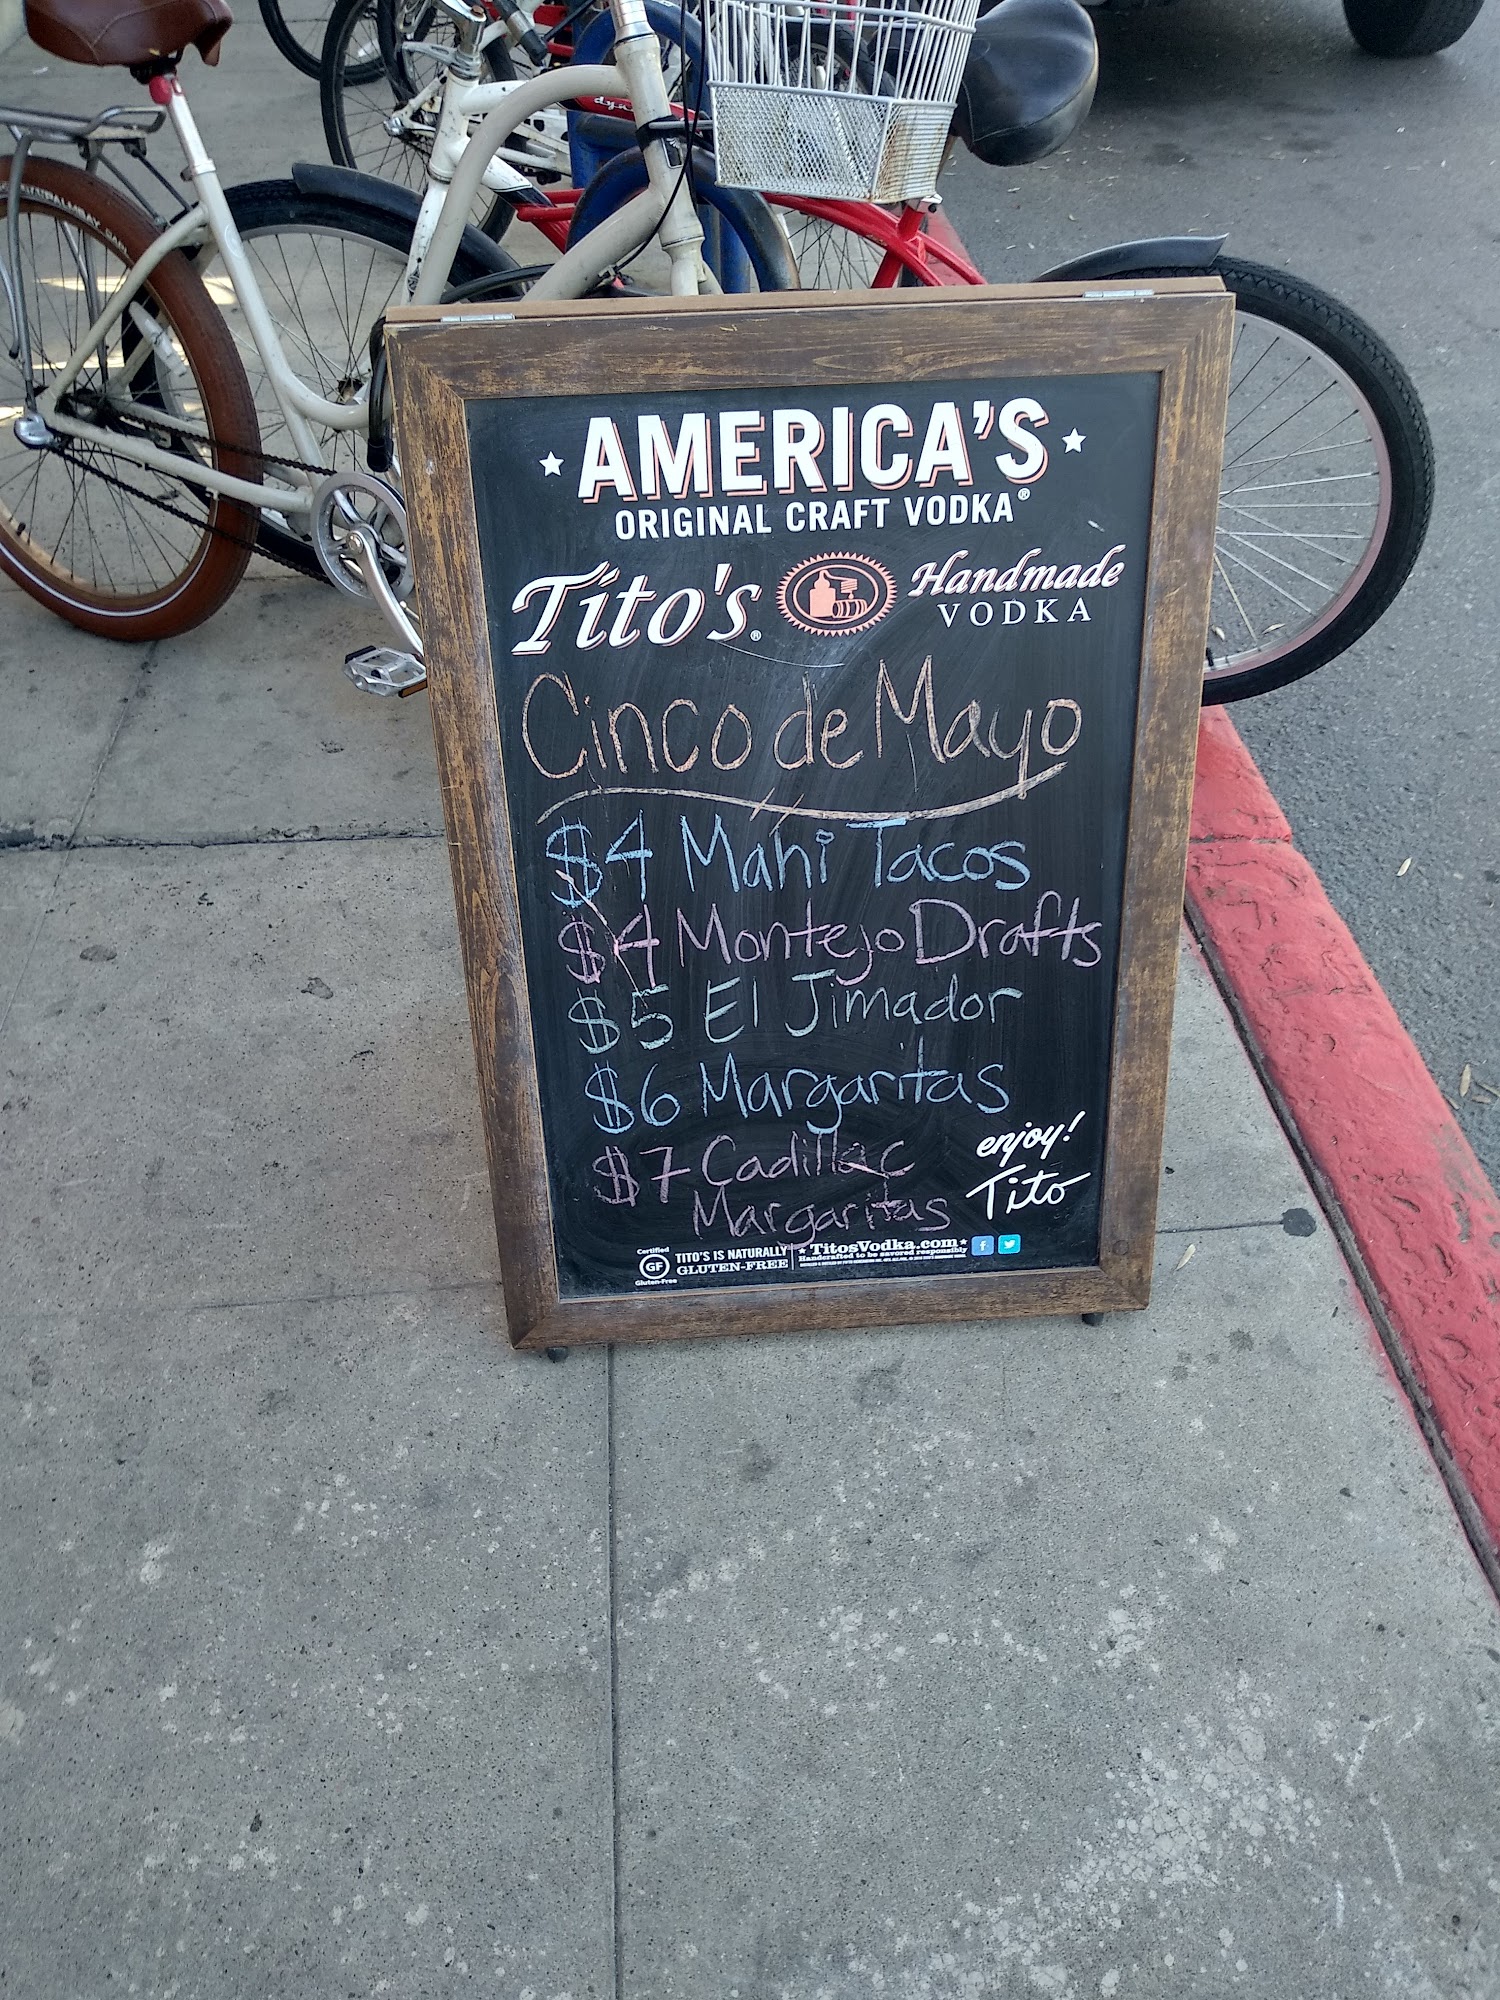 AMERICA'S
ORIGINAL CRAFT VODKA®
Tito's® Handmade
VODKA
Cinco de Mayo
$4 Mahi Tacos
$4 Montejo Drafts
$5 El Jimador
$6 Margaritas
$7 Cadillac
Margaritas
enjoy!
Tito
Certified
GF
Gluten-Free
TITO'S IS NATURALLY
GLUTEN-FREE
TitosVodka.com
Handcrafted to be savored responsibly